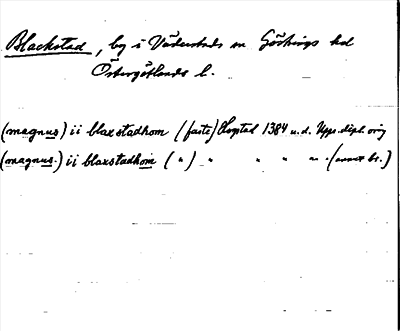 Blackstad, by i Väderstads sn Göstrings hd
Östergötlands l.
(magnus) ii blaxstadhom (faste) Hogstad 1384 u.d. Upps.dipl. orig
(magnus.) ii blaxstadhom (") " " " " . (annat br.)